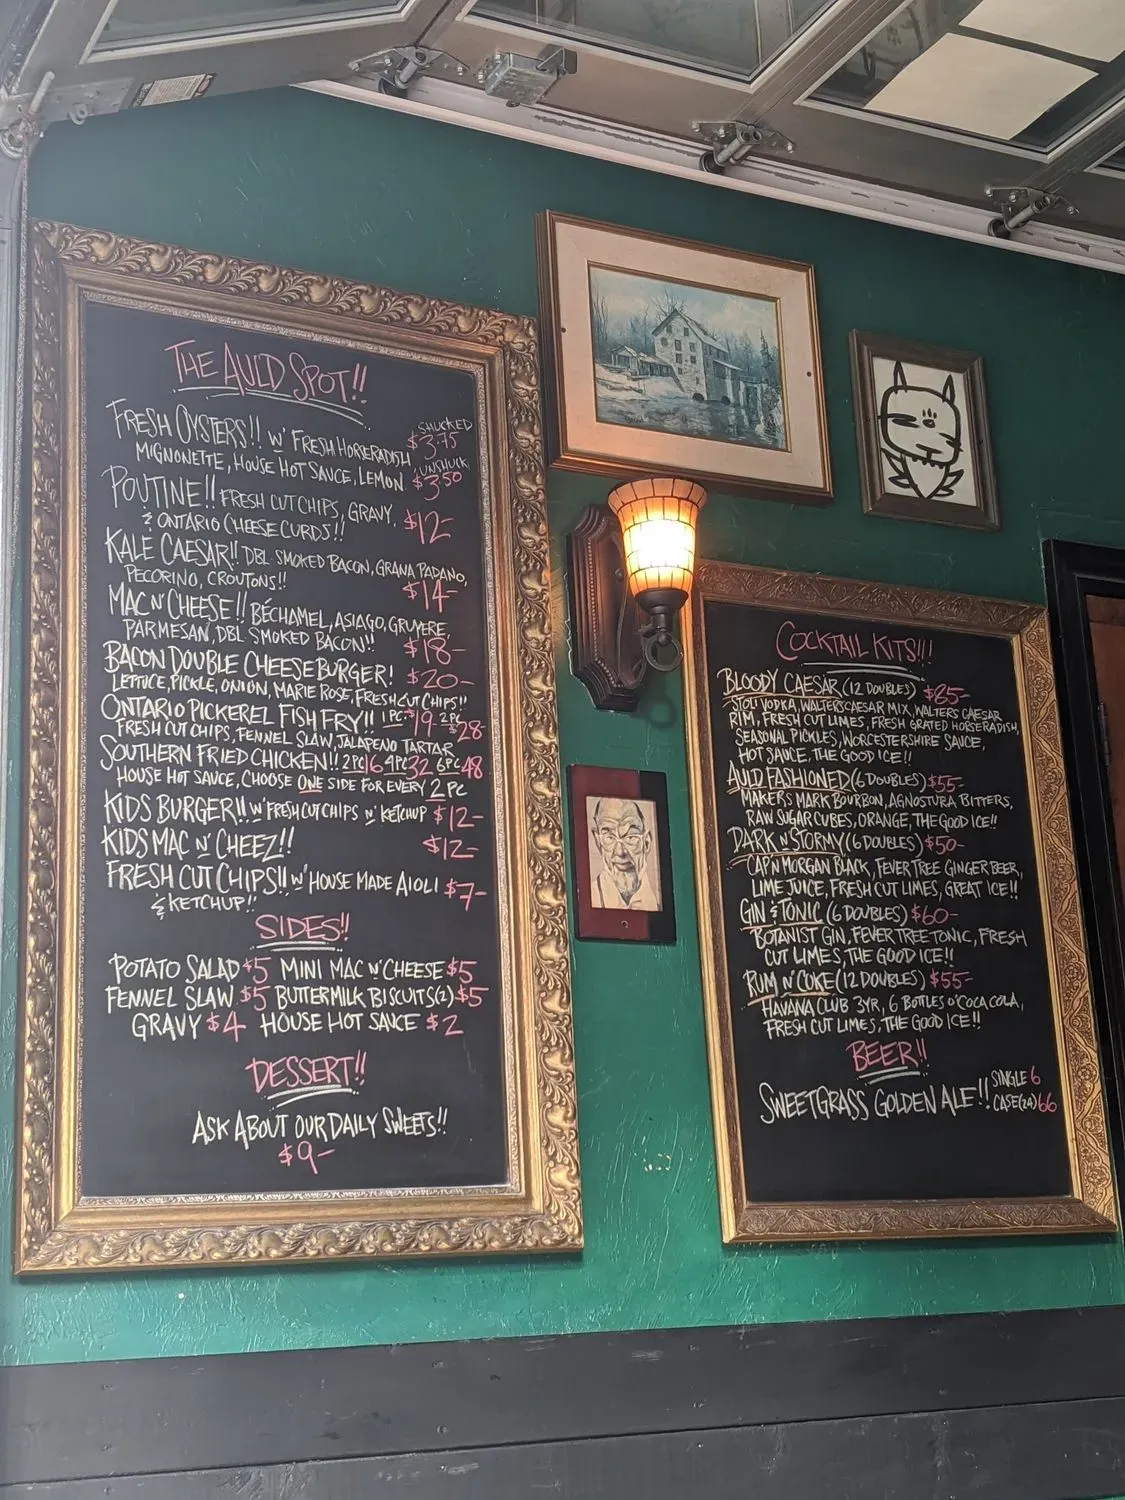 THE AULD SPOT!!
FRESH OYSTERS!! W' FRESH HORSERADISH SHUCKED $3.75
MIGNONETTE, HOUSE HOT SAUCE, LEMON UNSHUCK $3.50
POUTINE!! FRESH CUT CHIPS, GRAVY,
& ONTARIO CHEESE CURDS!! $12-
KALE CAESAR!! DBL SMOKED BACON, GRANA PADANO,
PECORINO, CROUTONS!! $14-
MAC N' CHEESE!! BÉCHAMEL, ASIAGO, GRUYERE,
PARMESAN, DBL SMOKED BACON!! $18-
BACON DOUBLE CHEESEBURGER! $20-
LETTUCE, PICKLE, ONION, MARIE ROSE, FRESH CUT CHIPS!!
ONTARIO PICKEREL FISH FRY!! 1 PC $19 2 PC $28
FRESH CUT CHIPS, FENNEL SLAW, JALAPENO TARTAR
SOUTHERN FRIED CHICKEN!! 2PC 16 4PC 32 6PC 48
HOUSE HOT SAUCE, CHOOSE ONE SIDE FOR EVERY 2 PC
KIDS BURGER!! W' FRESH CUT CHIPS N' KETCHUP $12-
KIDS MAC N' CHEEZ!! $12-
FRESH CUT CHIPS!! W' HOUSE MADE AIOLI $7-
& KETCHUP!!
SIDES!!
POTATO SALAD $5 MINI MAC N' CHEESE $5
FENNEL SLAW $5 BUTTERMILK BISCUITS(2) $5
GRAVY $4 HOUSE HOT SAUCE $2
DESSERT!!
ASK ABOUT OUR DAILY SWEETS!!
$9-
COCKTAIL KITS!!!
BLOODY CAESAR (12 DOUBLES) $85-
STOLI VODKA, WALTERS CAESAR MIX, WALTERS CAESAR
RIM, FRESH CUT LIMES, FRESH GRATED HORSERADISH,
SEASONAL PICKLES, WORCESTERSHIRE SAUCE,
HOT SAUCE, THE GOOD ICE!!
AULD FASHIONED (6 DOUBLES) $55-
MAKERS MARK BOURBON, AGNOSTURA BITTERS,
RAW SUGAR CUBES, ORANGE, THE GOOD ICE!!
DARK N' STORMY (6 DOUBLES) $50-
CAP'N MORGAN BLACK, FEVER TREE GINGER BEER,
LIME JUICE, FRESH CUT LIMES, GREAT ICE!!
GIN & TONIC (6 DOUBLES) $60-
BOTANIST GIN, FEVER TREE TONIC, FRESH
CUT LIMES, THE GOOD ICE!!
RUM N' COKE (12 DOUBLES) $55-
HAVANA CLUB 3YR, 6 BOTTLES O' COCA COLA,
FRESH CUT LIMES, THE GOOD ICE!!
BEER!!
SWEETGRASS GOLDEN ALE!! SINGLE 6
CASE(24) 66